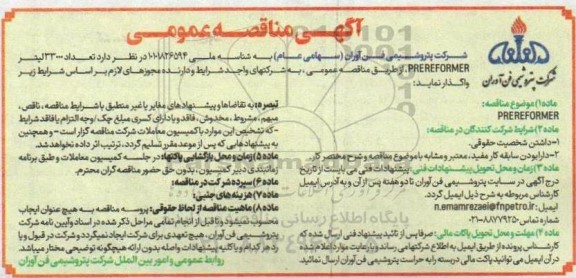 آگهی مناقصه عمومی
شرکت پتروشیمی فن آوران
شرکت پتروشیمی فن آوران (سهامی عام) به شناسه ملی ۱۰۱۰۱۸۳۶۵۹۴ در نظر دارد تعداد ۳۳۰۰۰ لیتر
PREREFORMER از طریق مناقصه عمومی، به شرکتهای واجد شرایط و دارنده مجوزهای لازم بر اساس شرایط زیر
واگذار نماید:
ماده ۱) موضوع مناقصه:
PREREFORMER
ماده ۲) شرایط شرکت کنندگان در مناقصه:
۱- داشتن شخصیت حقوقی.
۲- دارا بودن سابقه کار مفید، معتبر و مشابه با موضوع مناقصه و شرح مختصر کار.
ماده ۳) زمان و محل تحویل پیشنهادات فنی: پیشنهادات فنی می بایست از تاریخ
درج آگهی در سایت پتروشیمی فن آوران تا دو هفته پس از آن و به آدرس ایمیل
کارشناس مربوطه به شرح ذیل ایمیل گردد.
n.emamrezaei@fnpetro.ir ایمیل:
شماره تماس: ۰۲۱-۸۸۷۷۹۲۵۰
ماده ۴) مهلت و محل تحویل پاکت مالی: صرفا پس از تائید پیشنهاد فنی ارسال شده که
کارشناس پرونده از طریق ایمیل به اطلاع شرکتهامی رساند و با رعایت موارد اعلام شده
در آن ایمیل می توانید پاکت مالی در بسته را به حراست پتروشیمی فن آوران ارسال نمائید.
تبصره: به تقاضاها و پیشنهادهای مغایر یا غیر منطبق با شرایط مناقصه، ناقص،
مبهم، مشروط، مخدوش، فاقد و یا دارای کسری مبلغ چک / وجه التزام یا فاقد شرایط
- که تشخیص این موارد با کمیسیون معاملات شرکت مناقصه گزار است - و همچنین
به پیشنهادهایی که پس از موعد مقرر تسلیم گردد، ترتیب اثر داده نخواهد شد.
ماده ۵) زمان و محل بازگشایی پاکتها: در جلسه کمیسیون معاملات و طبق برنامه
زمانبندی دبیر کمیسیون، بدون حق حضور مناقصه گران محترم.
ماده ۶) سپرده شرکت در مناقصه:
ماده ۷) هزینه های جنبی:
ماده ۸) ماهیت مناقصه از لحاظ حقوقی: پروسه مناقصه به هیچ عنوان ایجاب
محسوب نمیشود و تا قبل از انجام تمامی مراحل ذکر شده در اسناد و آئین نامه شرکت
پتروشیمی فن آوران، هیچ تعهدی برای شرکت ایجاد نمیگردد و شرکت در قبول و یا
رد هر کدام و یا کلیه پیشنهادات واصله بدون ارائه هیچگونه توضیحی مختار میباشد.
روابط عمومی و امور بین الملل شرکت پتروشیمی فن آوران